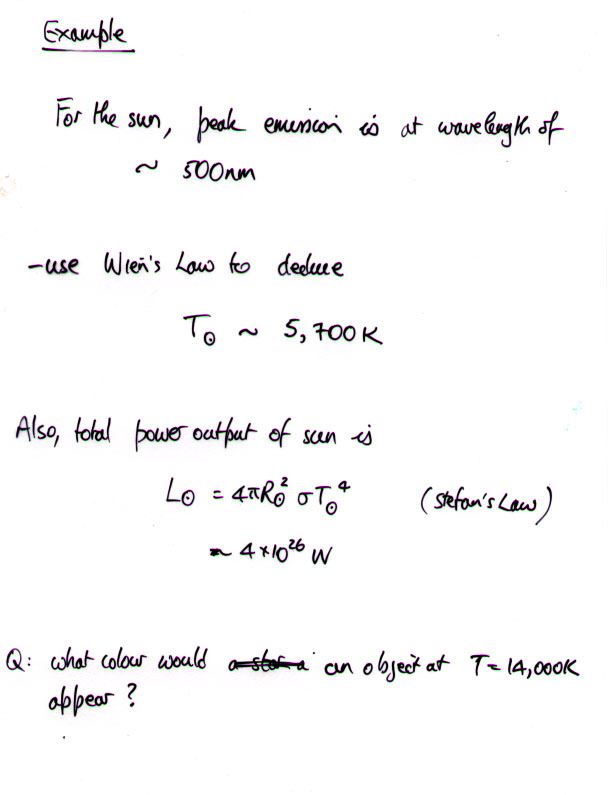 Example
For the sun, peak emission is at wavelength of
~ 500nm
-use Wien's Law to deduce
T⊙ ~ 5,700K
Also, total power output of sun is
L⊙ = 4πR⊙² σT⊙⁴ (Stefan's Law)
≈ 4×10²⁶ W
Q: what colour would a star a an object at T=14,000K
appear?